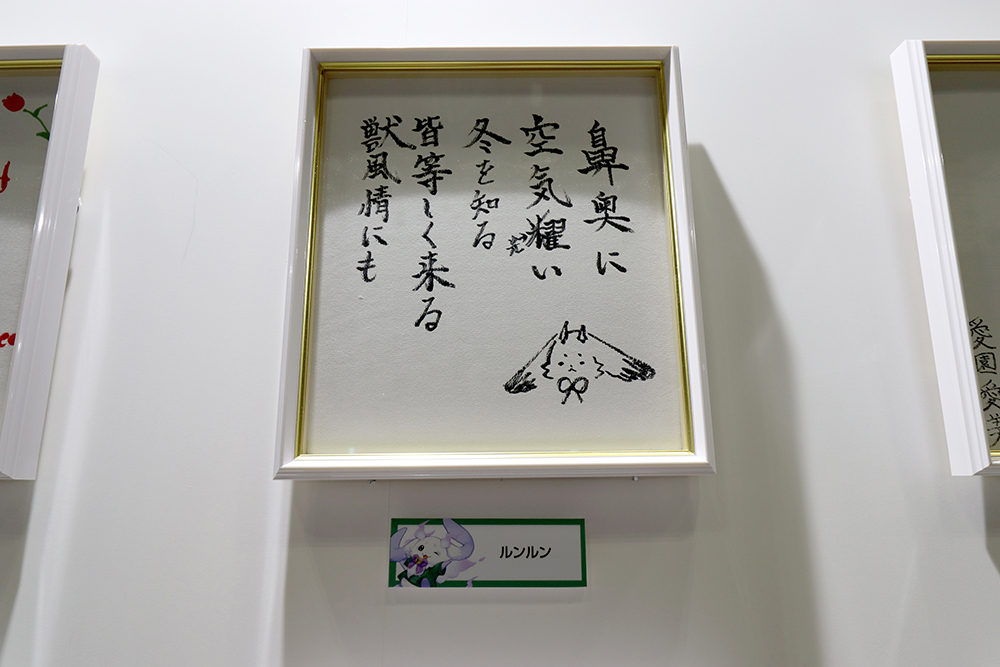 鼻奥に
空気耀い
冬を知る
皆等しく来る
獣風情にも
ルンルン
愛園愛